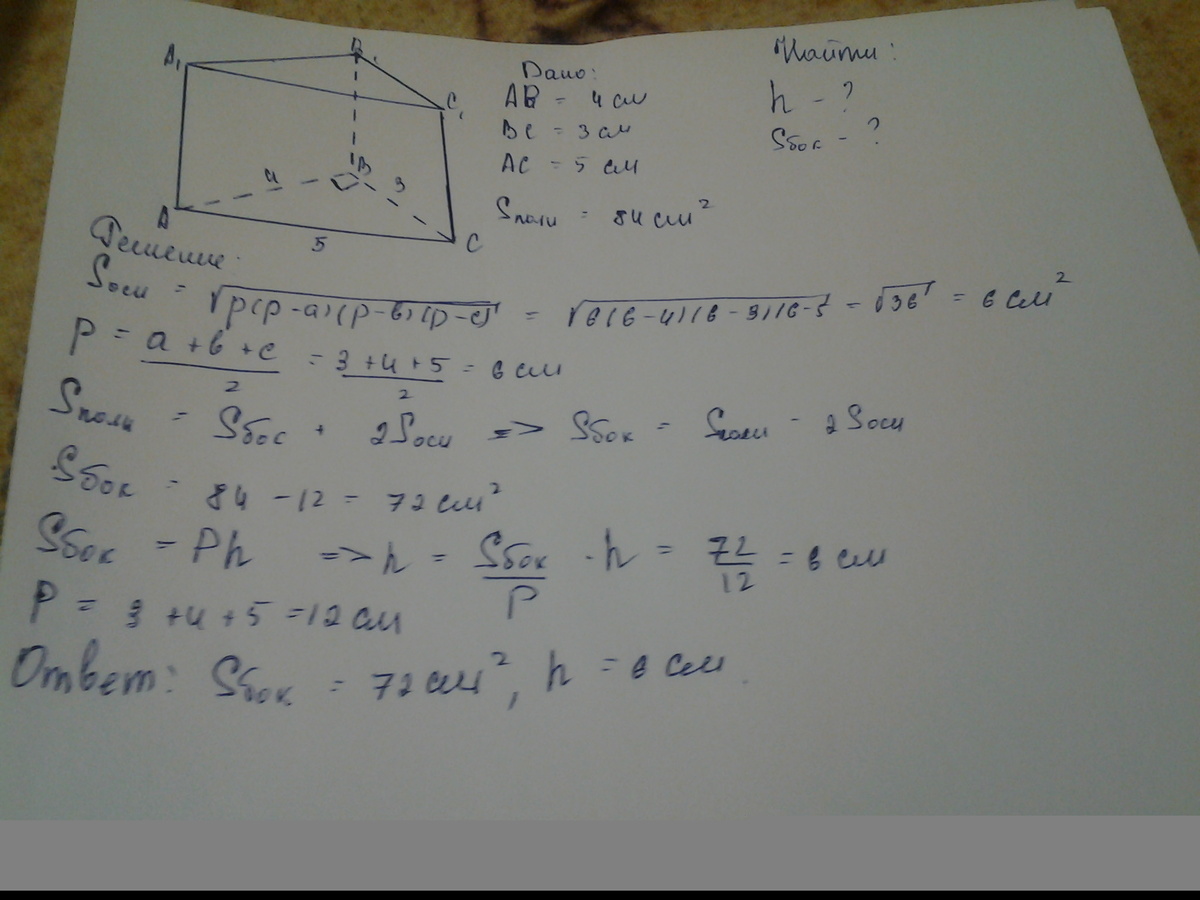 A₁ B₁ C₁
A B C
4 3
5
Дано:
AB = 4 см
BC = 3 см
AC = 5 см
Sполн = 84 см²
Найти:
h - ?
Sбок - ?
Решение:
Sосн = √p(p-a)(p-b)(p-c) = √6(6-4)(6-3)(6-5 = √36 = 6 см²
P = a+b+c/2 = 3+4+5/2 = 6 см
Sполн = Sбос + 2Sосн => Sбок = Sполн - 2Sосн
Sбок = 84 - 12 = 72 см²
Sбок = Ph => h = Sбок/P · h = 72/12 = 6 см
P = 3+4+5 = 12 см
Ответ: Sбок = 72 см², h = 6 см.